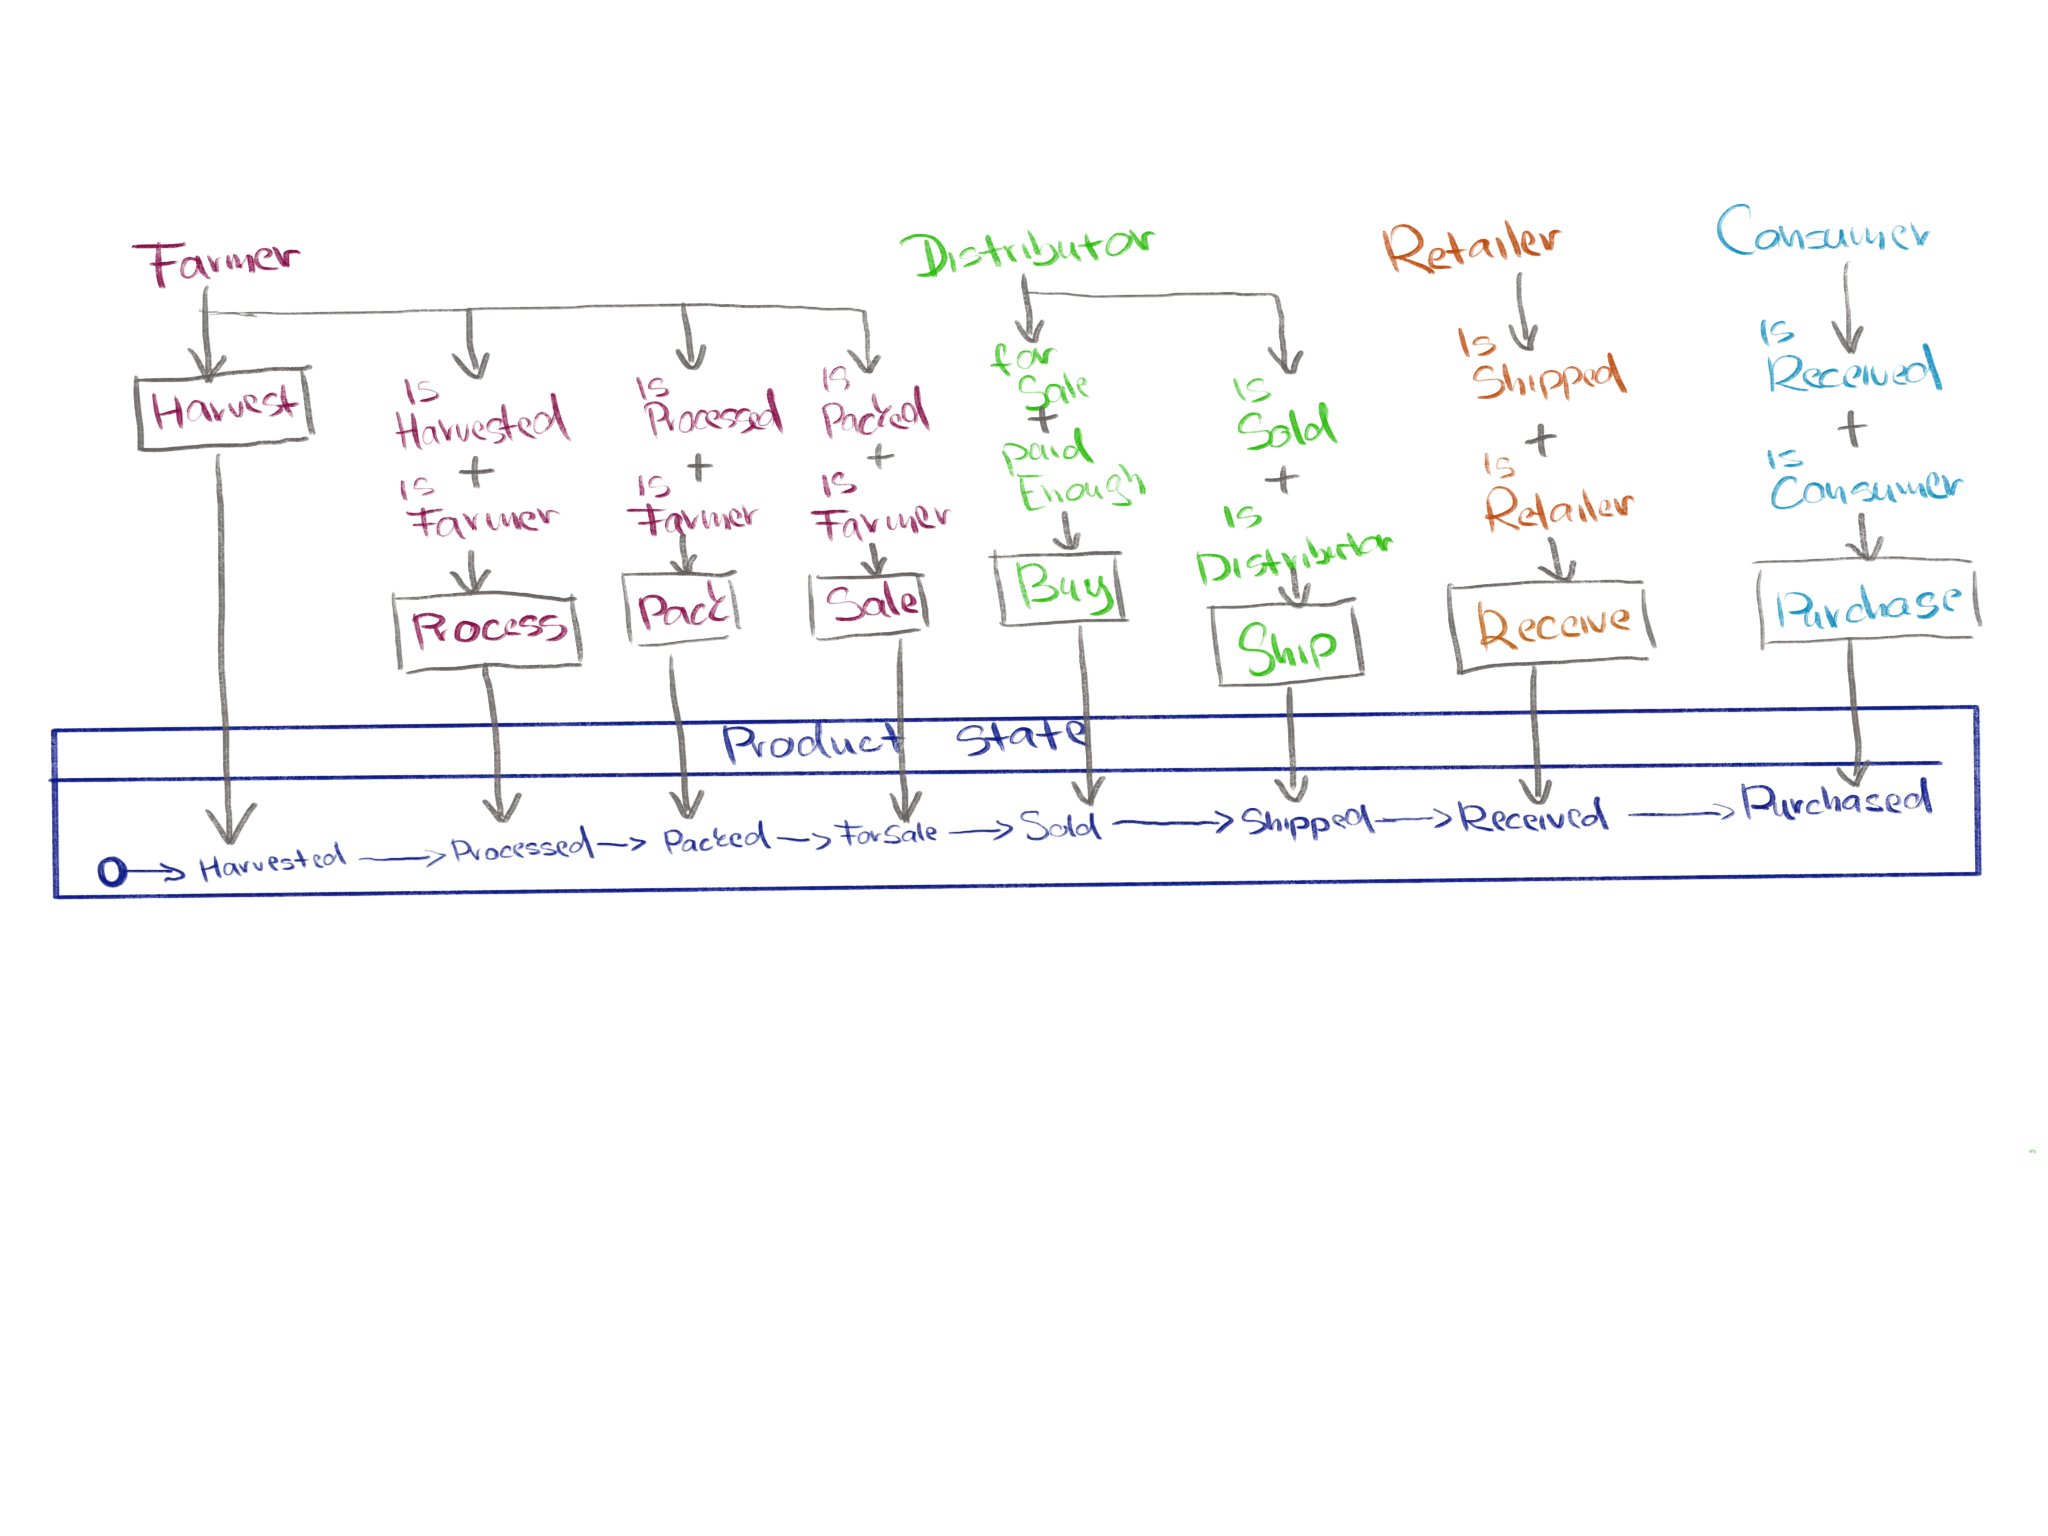 Farmer
Harvest
is
Harvested
+
is
Farmer
Process
is
Processed
+
is
Farmer
Pack
is
Packed
+
is
Farmer
Sale
Distributor
for
Sale
+
paid
Enough
Buy
is
Sold
+
is
Distributor
Ship
Retailer
is
Shipped
+
is
Retailer
Receive
Consumer
is
Received
+
is
Consumer
Purchase
Product State
Harvested Processed Packed ForSale Sold Shipped Received Purchased